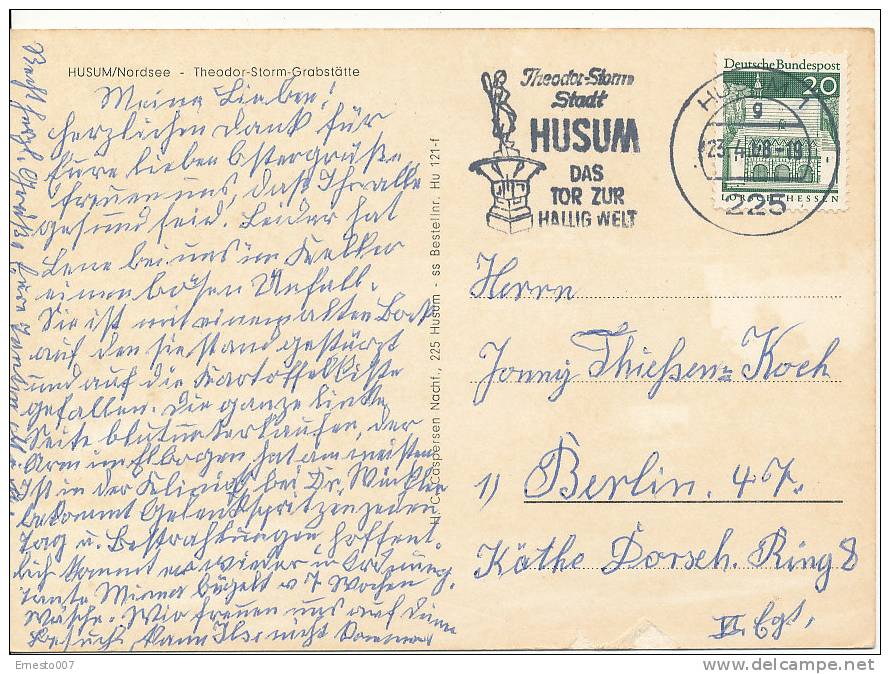 HUSUM/Nordsee - Theodor-Storm-Grabstätte
Meine Lieben!
herzlichen Dank für
Eure lieben Ostergrüße
freuen uns, daß Ihr alle
gesund seid. Leider hat
Lene bei uns im Keller
einen bösen Unfall.
Sie ist mit einem alten Bock
auf den sie stand gestürzt
und auf die Kartoffelkiste
gefallen. Die ganze linke
Seite blutunterlaufen, der
Arm im Elbogen hat am meisten
Ist in der Klinik bei Dr. Winkler
bekommt Gelenkspritzen jeden
Tag u. Bestrahlungen hoffent-
lich kommt es wieder in Ordnung.
Tante Minna bügelt v 7 Wochen
Wäsche. Wir freuen uns auf deine
Besuch, kann Ilse nicht kommen
H. C. Caspersen Nachf., 225 Husum - ss Bestellnr. Hu 121-f
Theodor-Storm
Stadt
HUSUM
DAS
TOR ZUR
HALLIG WELT
HUSUM 1
g
23.4.68-18
225
Deutsche Bundespost
20
LORSCH/HESSEN
Herrn
Jonny Thießen-Koch
1) Berlin. 47.
Käthe Dorsch. Ring 8
II. Egt.
Ernesto007
www.delcampe.net